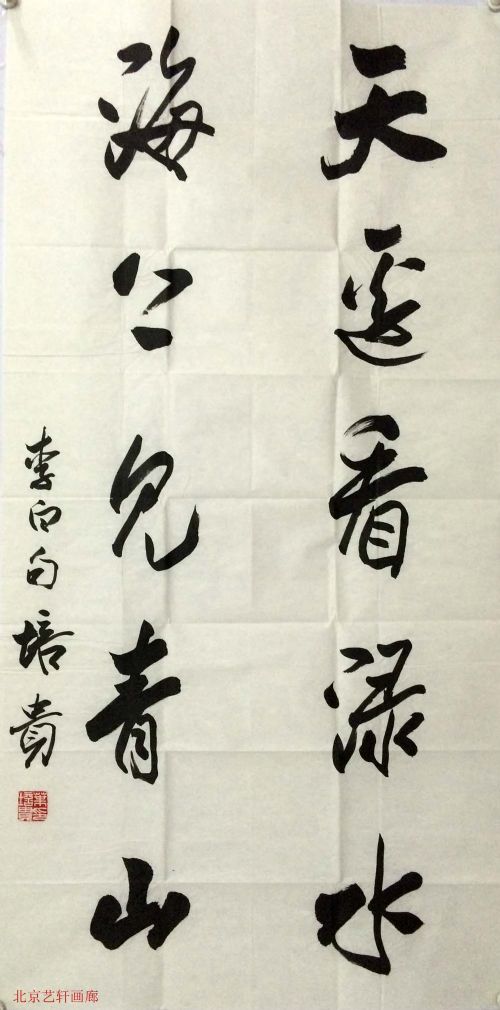 天邊看渌水
海上見青山
李白句培貴
北京艺轩画廊